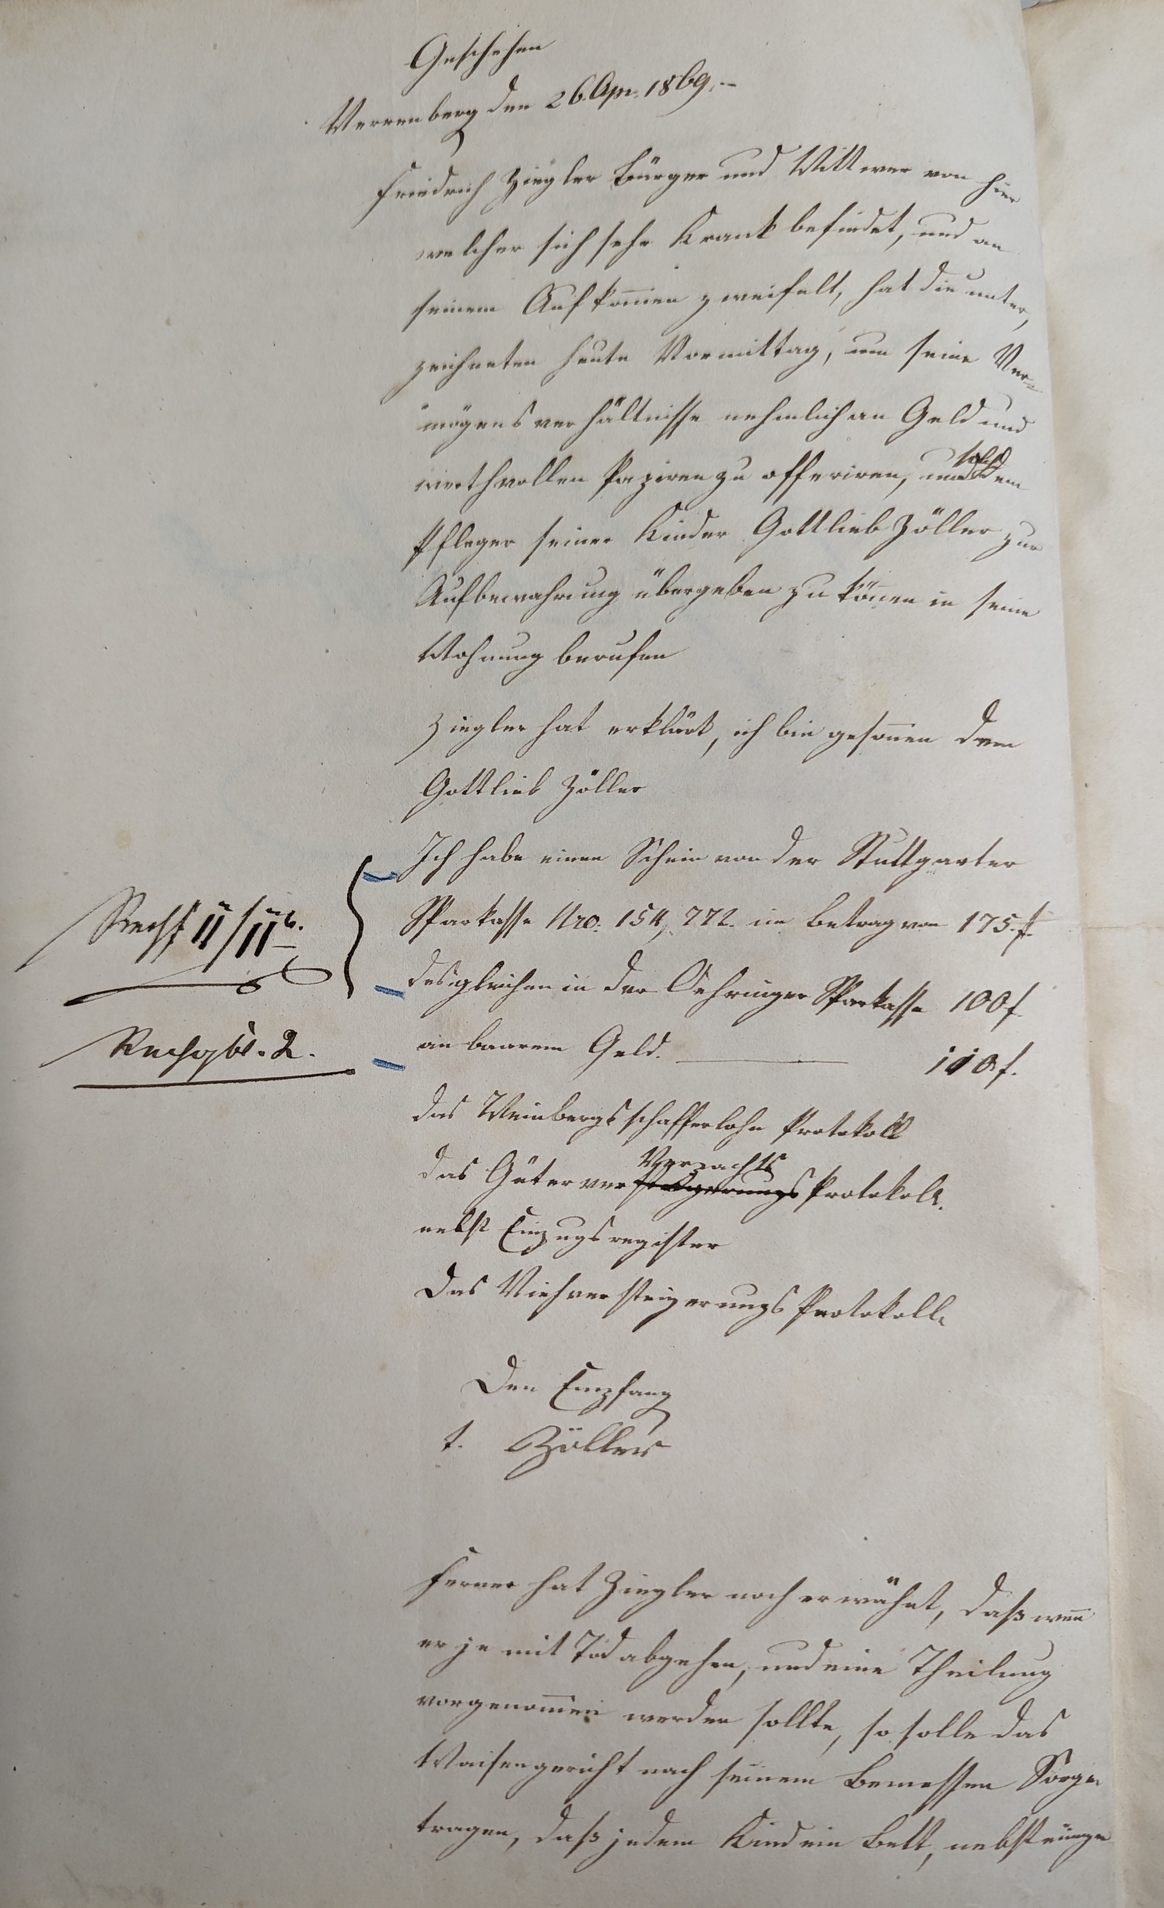 Geschehen
Verrenberg den 26. Apr. 1869.–
Friedrich Ziegler Bürger und Wittwer von hier
welcher sich sehr Krank befindet, und an
seinem Aufkom̄en zweifelt, hat die unter,
zeichneten heute Vormittag, um seine Ver-
mögensverhältnisse nehmlich an Geld und
werthvollen Papiren zu offeriren, um solche dem
Pfleger seiner Kinder Gottlieb Zöller zur
Aufbewahrung übergeben zu kön̄en in seine
Wohnung berufen
Ziegler hat erklärt, ich bin geson̄en dem
Gottlieb Zöller
Ich habe einen Schein von der Stuttgarter
Sparkasse Nro. 154,772. im Betrag von 175.f.
desgleichen in der Oehringer Sparkasse 100f
an baarem Geld. 110f.
II/II b.
Rechgsbl. 2.
das Weinbergsschafferlohn Protokoll
das Güterver Verpachts Protokoll.
nebst Einzugsregister
Das Viehversteigerungs Protokoll.
Den Empfang
t. Zöller
Ferner hat Ziegler noch erwähnt, daß wen̄
er je mit Tod abgehen, und eine Theilung
vorgenom̄en werden sollte, so solle das
Waisengericht nach seinem Bemessen Sorge
tragen, daß jedem Kind ein Bett, nebst einige